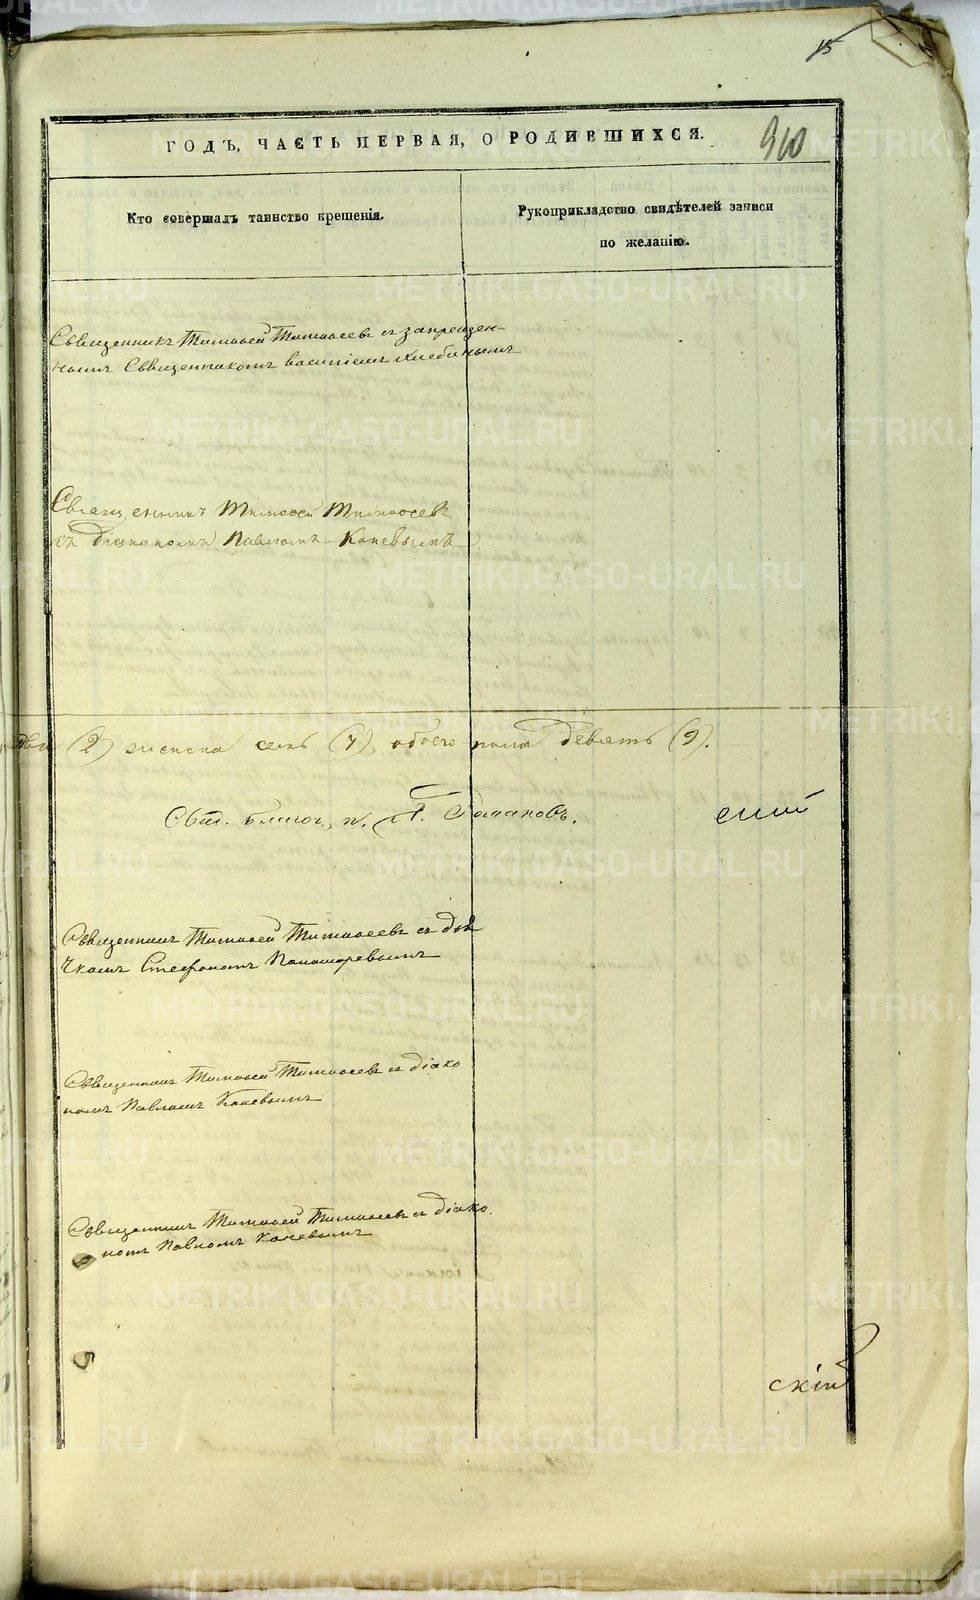 15
ГОДЪ, ЧАСТЬ ПЕРВАЯ, О РОДИВШИХСЯ.
910
Кто совершалъ таинство крещенія.
Рукоприкладство свидѣтелей записи
по желанію.
Священникъ Тимоѳей Тимоѳеевъ съ запрещен-
нымъ Священникомъ Василіемъ
Священникъ Тимоѳей Тимоѳеевъ
съ Діакономъ Павломъ Каневымъ
два (2) женска семь (7), обоего пола девять (9).
Романовъ.
Священникъ Тимоѳей Тимоѳеевъ съ дья
чкомъ Стефаномъ Пономаревымъ
Священникъ Тимоѳей Тимоѳеевъ съ діако
номъ Павломъ Каневымъ
Священникъ Тимоѳей Тимоѳеевъ съ діако
номъ Павломъ Каневымъ
скій
METRIKI.GASO-URAL.RU